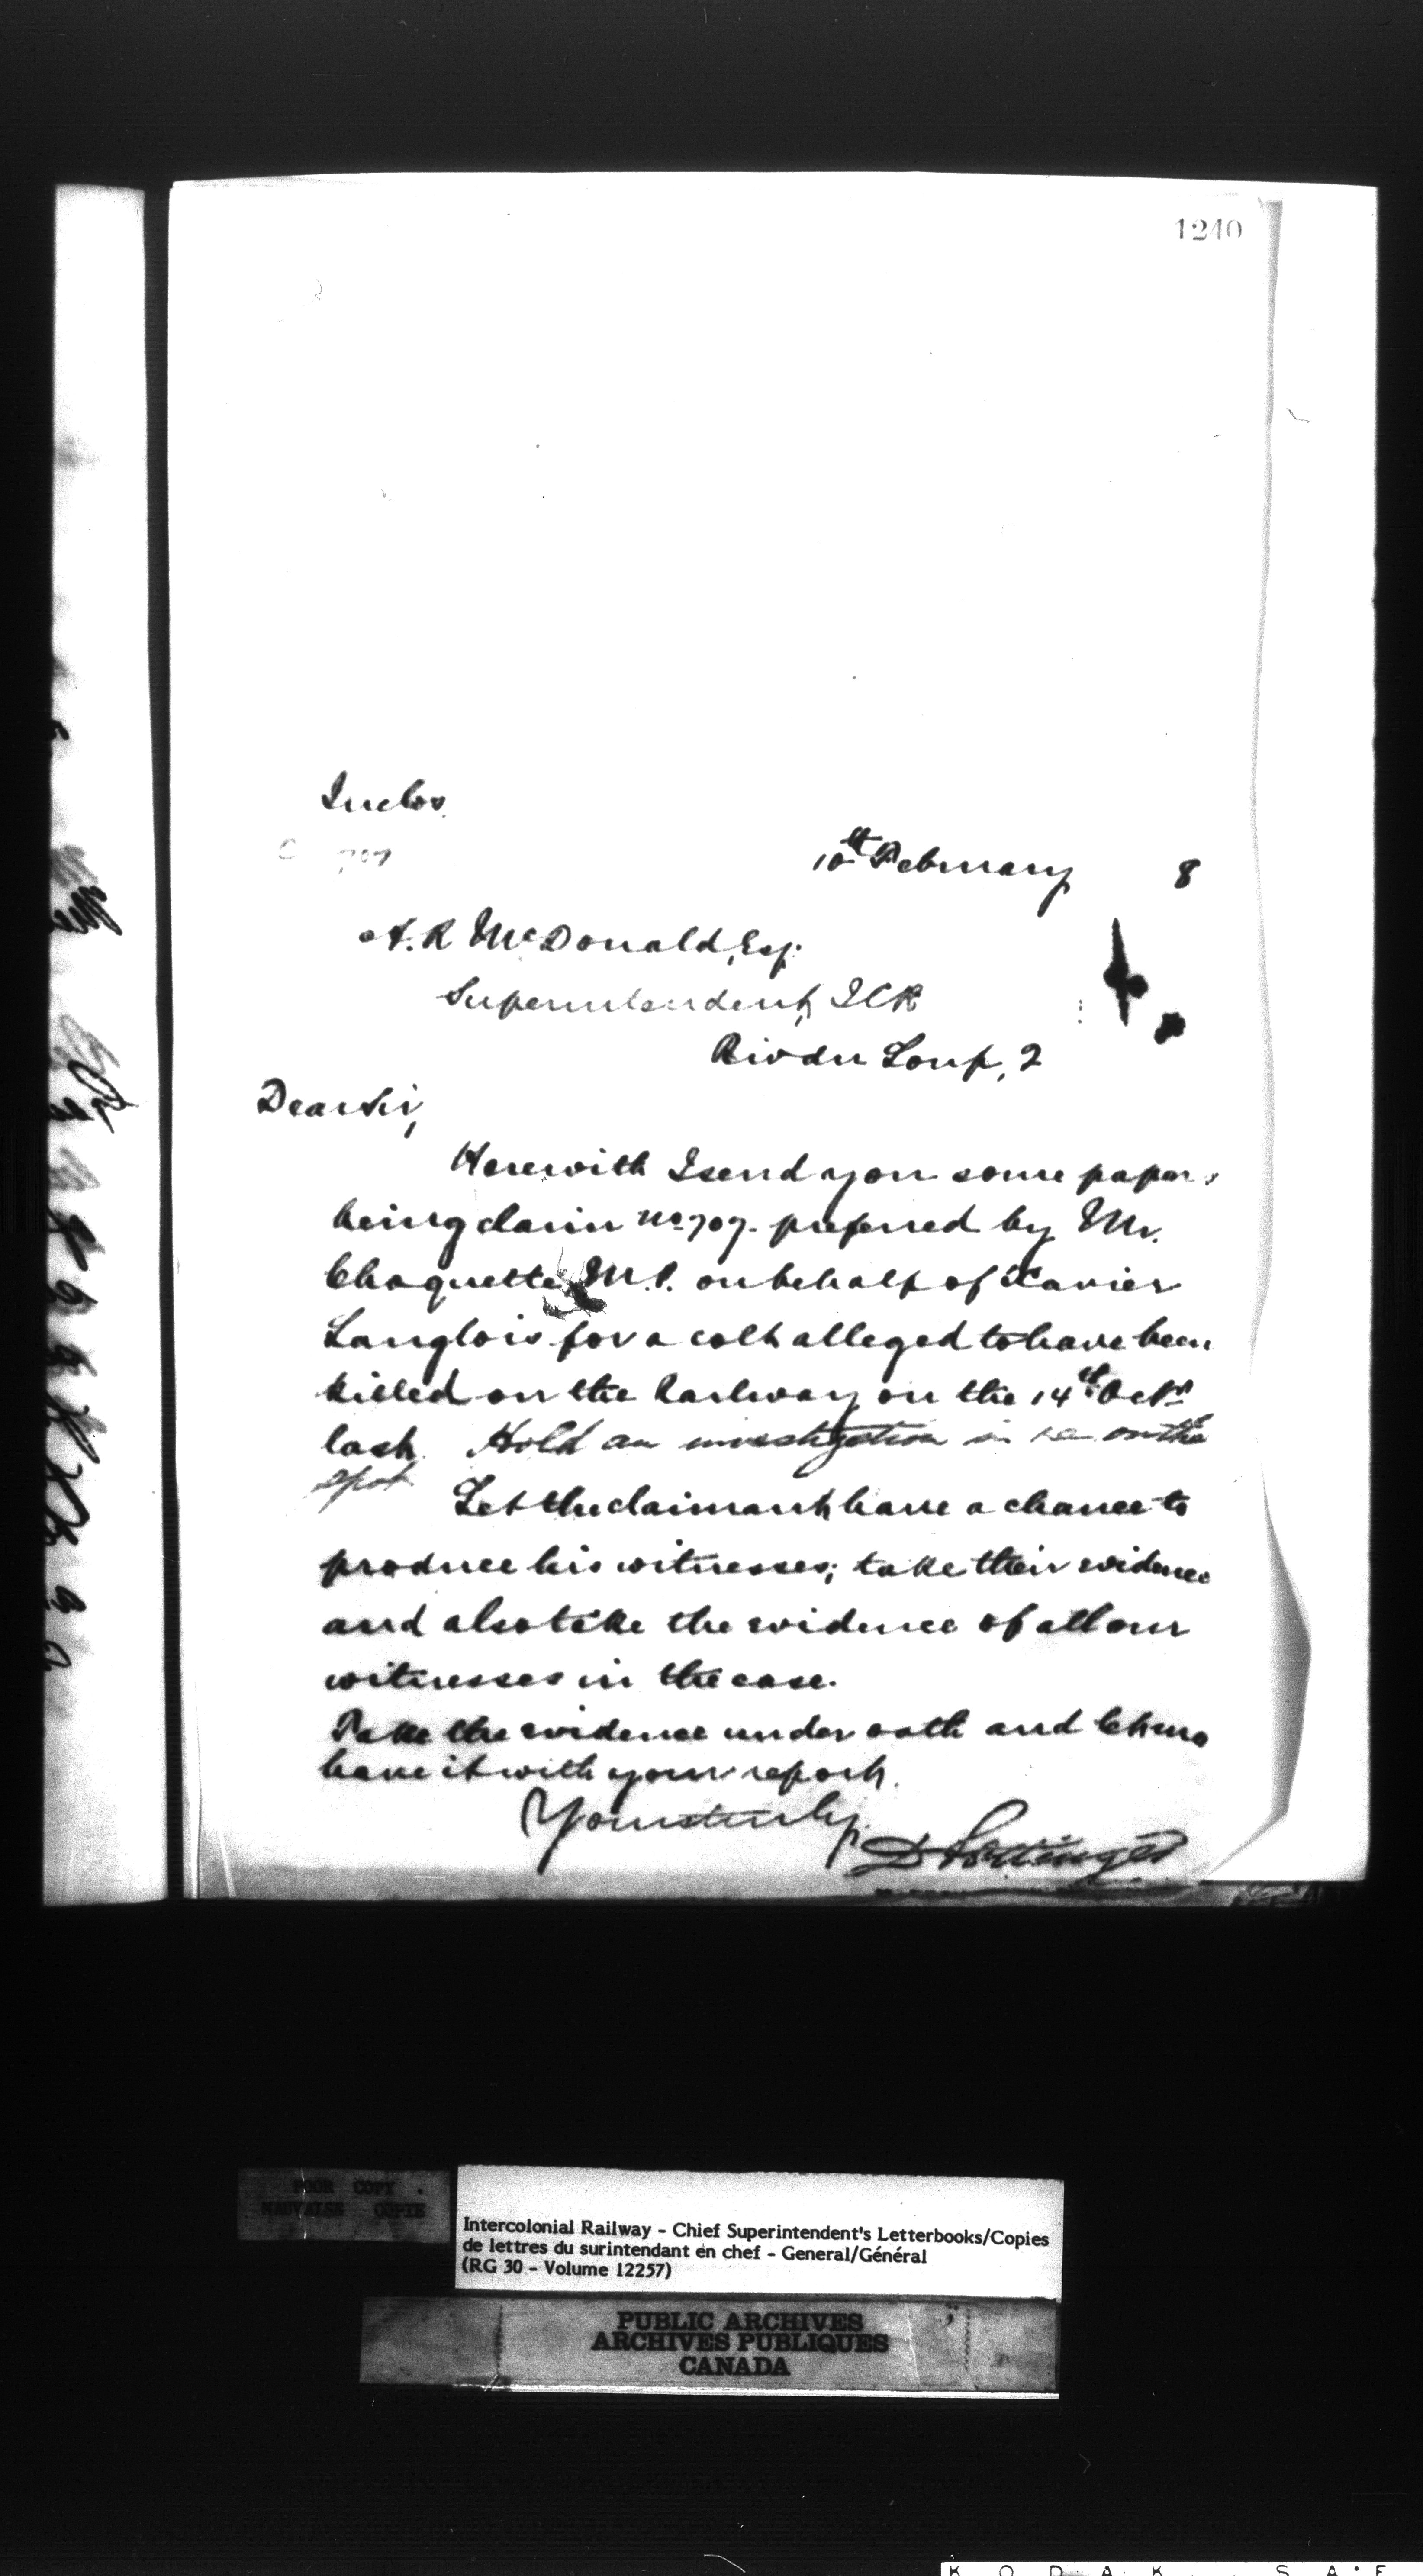 1240
Inclos.
C 707
10th February 8
A. R McDonald, Esq.
Superintendent, ICR
Riv du Loup, 2
Dear Sir,
Herewith I send you some papers
being claim no 707. preferred by Mr.
Choquette M.P. on behalf of Xavier
Langlois for a colt alleged to have been
killed on the Railway on the 14th Octr
last. Hold an investigation in re on the
spot.
Let the claimant have a chance to
produce his witnesses; take their evidence
and also take the evidence of all our
witnesses in the case.
Take the evidence under oath and let me
have it with your report.
Yours truly,
D Pottinger
POOR COPY
MAUVAISE COPIE
Intercolonial Railway - Chief Superintendent's Letterbooks/Copies
de lettres du surintendant en chef - General/Général
(RG 30 - Volume 12257)
PUBLIC ARCHIVES
ARCHIVES PUBLIQUES
CANADA
K O D A K S A F